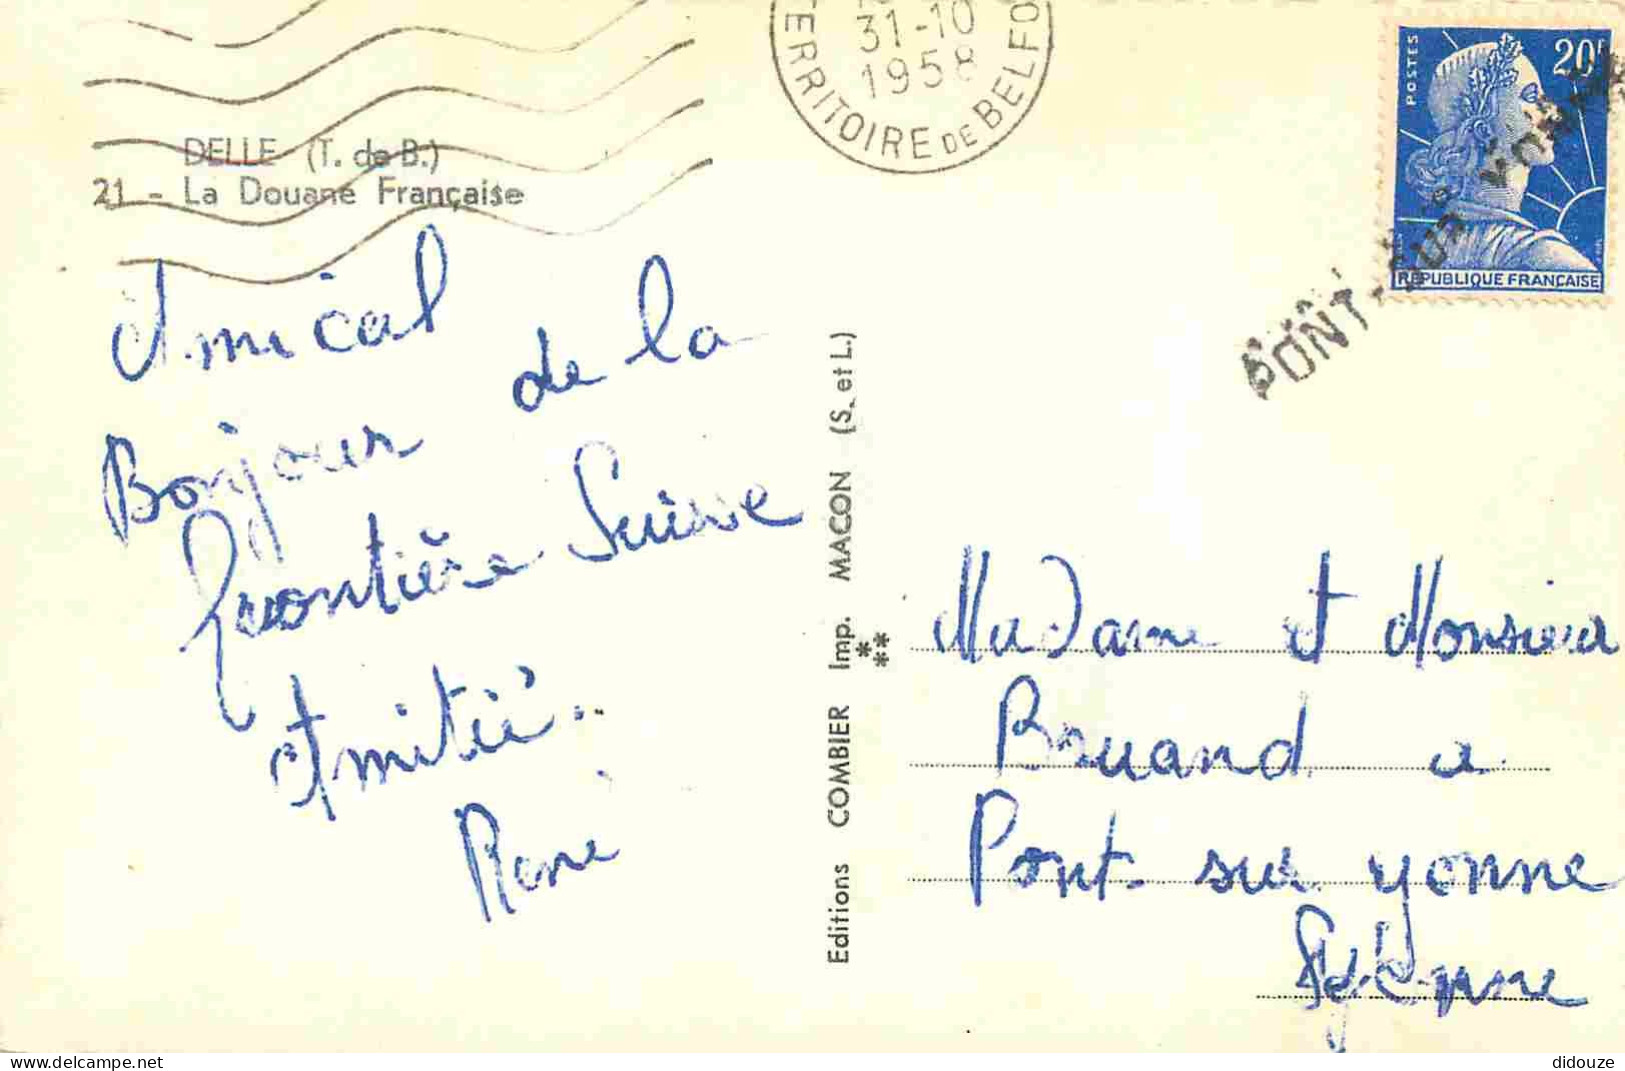 31-10
1958
TERRITOIRE DE BELFO
POSTES
20F
REPUBLIQUE FRANÇAISE
PONT-SUR-YONNE
DELLE (T. de B.)
21 - La Douane Française
Amical
Bonjour de la
frontière Suisse
Amitié..
René
Editions COMBIER Imp. MACON (S. et L.)
Madame et Monsieur
Bruand a
Pont-sur yonne
Yonne
didouze